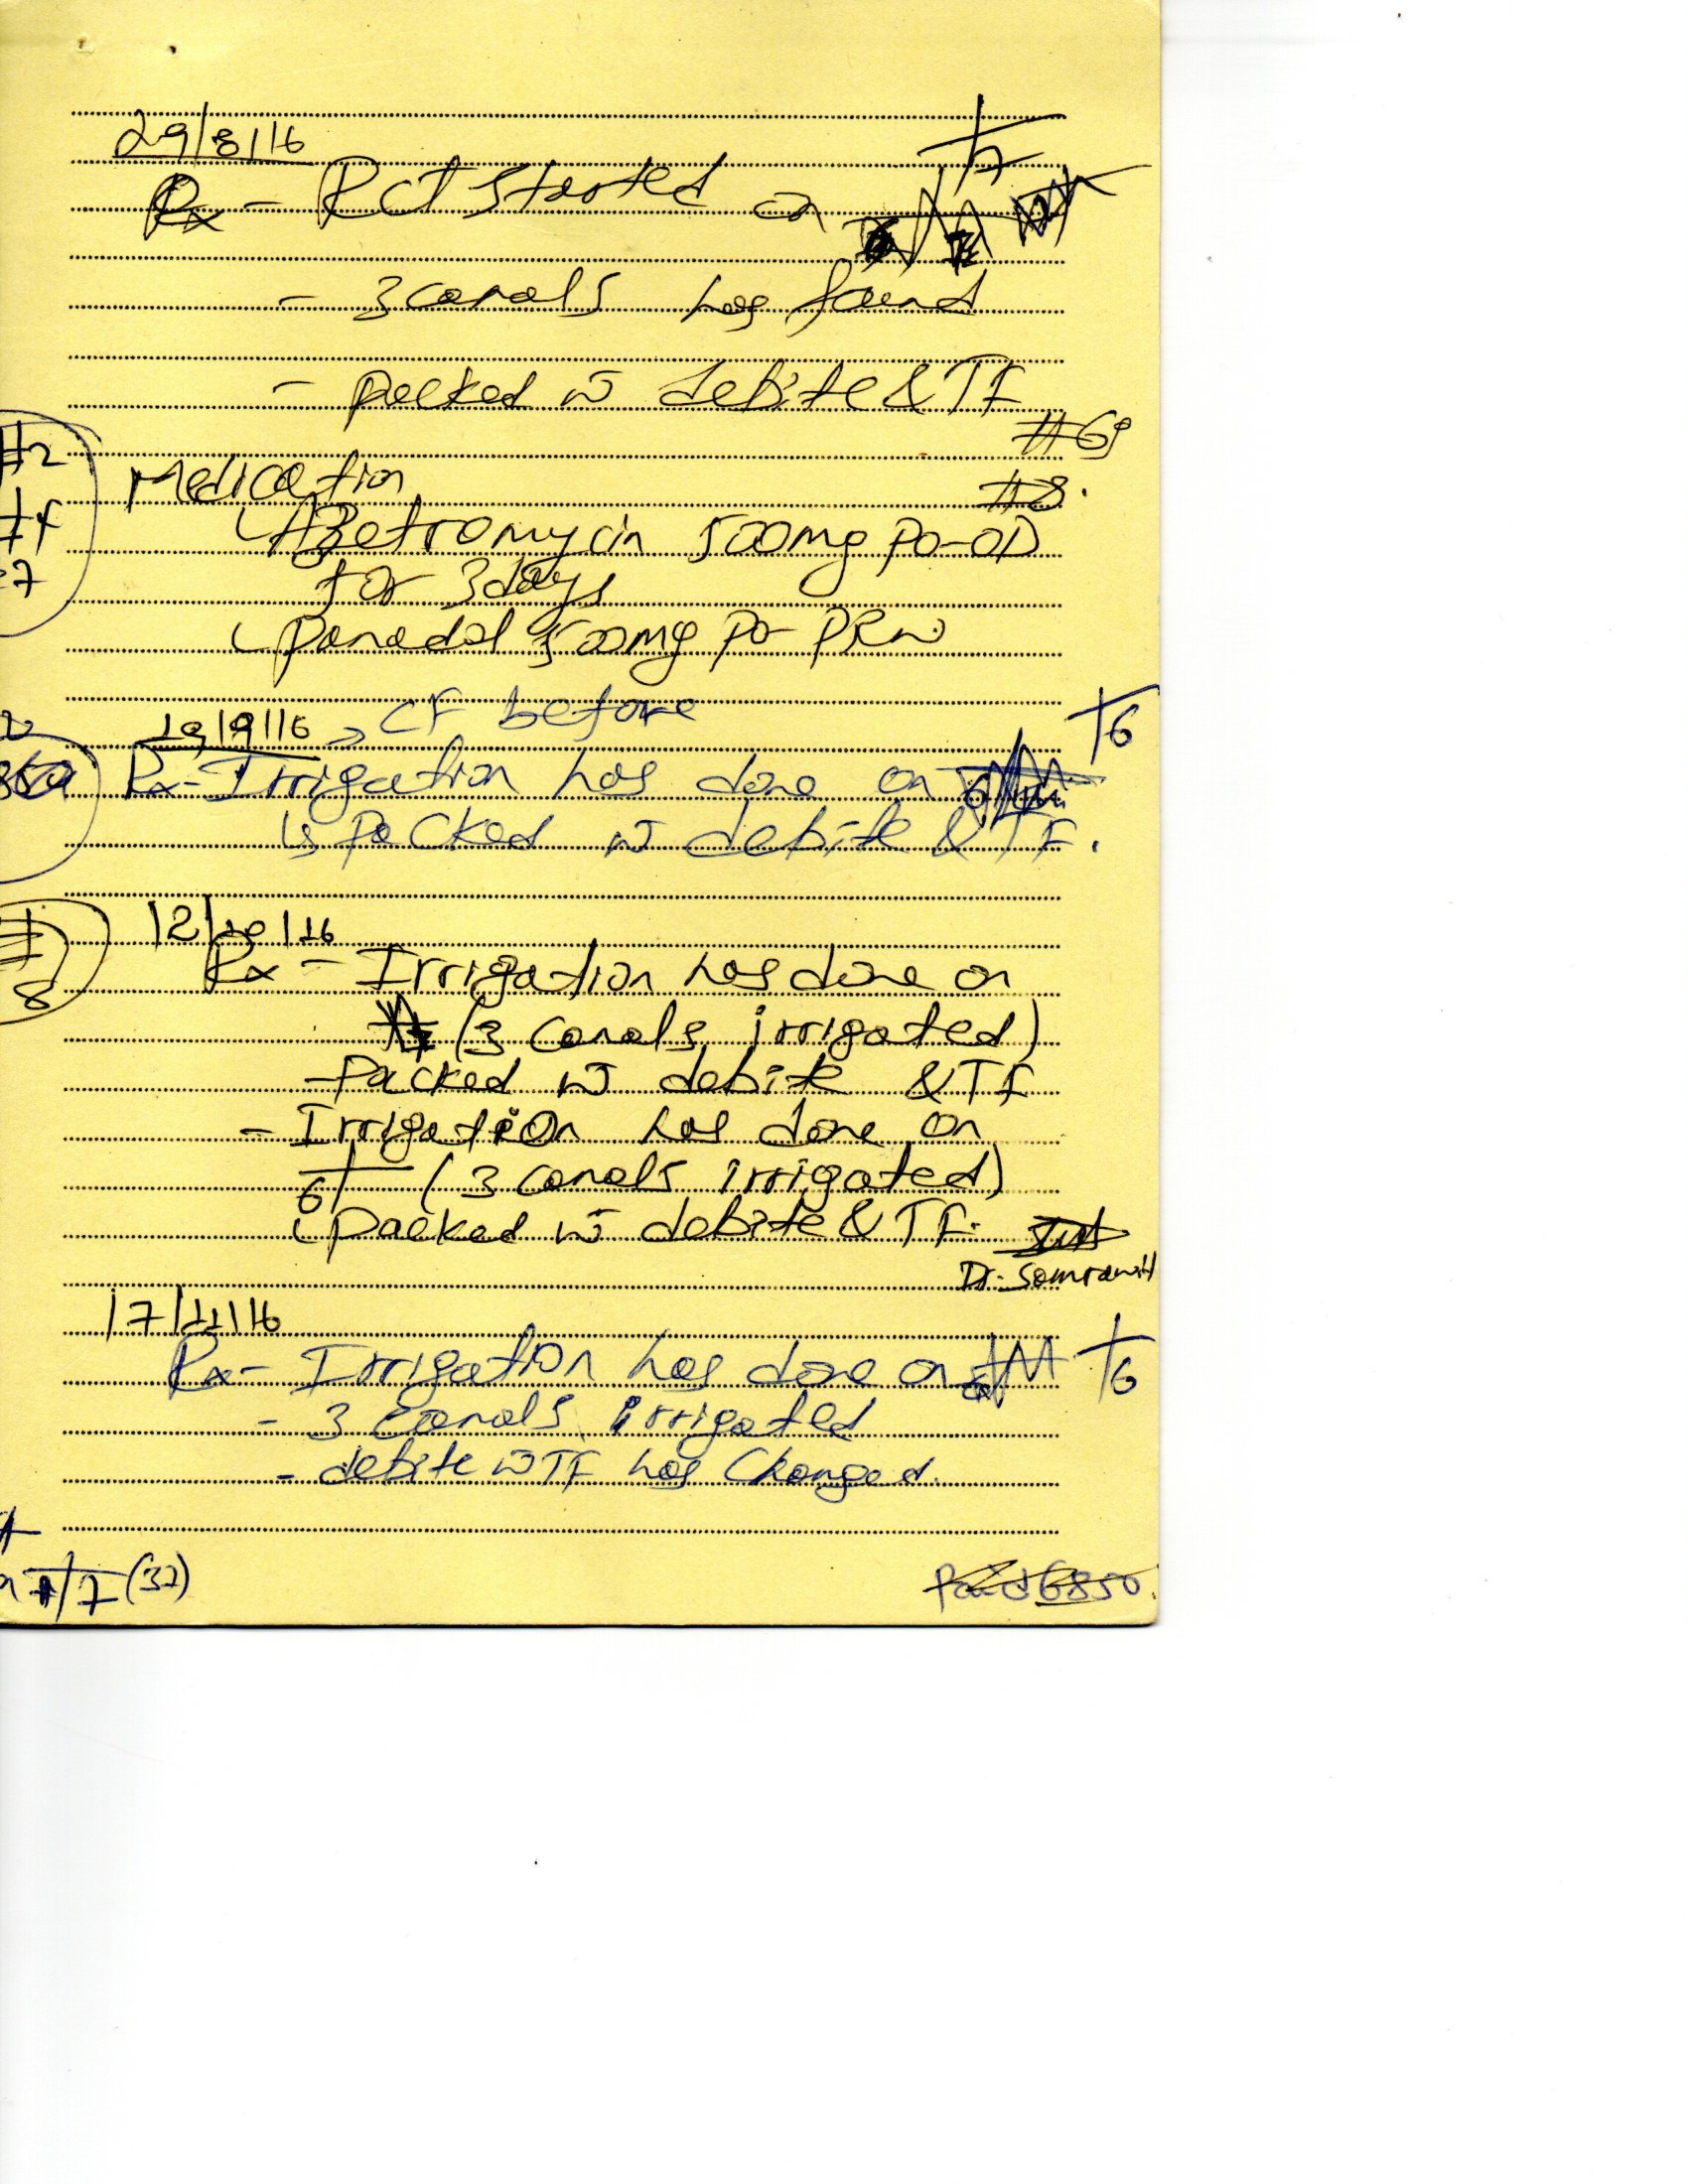 29/8/16
Rx - RCT Started on
- 3 canals has found
- packed w̄ debite & TF
#2
Medication
#8.
Azetromycin 500mg PO-OD
for 3 days
Panadol 500mg PO PRN
19/9/16 → CF before
6
Rx - Irrigation has done on
↳ Packed w̄ debite & TF.
12/10/16
8
Rx - Irrigation has done on
(3 canals irrigated)
- Packed w̄ debite & TF
- Irrigation has done on
6 (3 canals irrigated)
packed w̄ debite & TF.
Dr. Somrawit
17/11/16
Rx - Irrigation has done on 6
- 3 canals irrigated
- debite w̄ TF has changed.
7 (37)
Paid 6850.